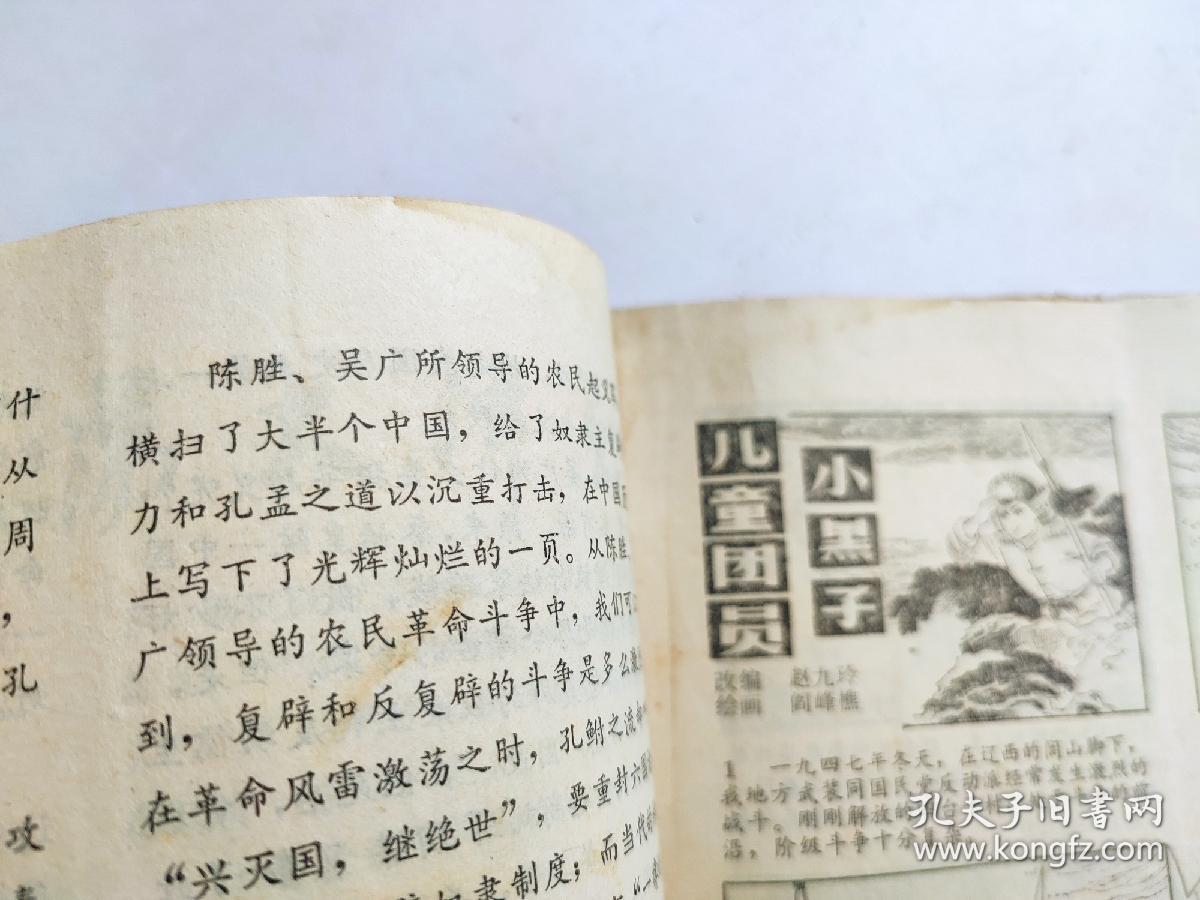 什
从
周
，
孔
攻
陈胜、吴广所领导的农民起义
横扫了大半个中国，给了奴隶主复
力和孔孟之道以沉重打击，在中国
上写下了光辉灿烂的一页。从陈胜
广领导的农民革命斗争中，我们可
到，复辟和反复辟的斗争是多么激
在革命风雷激荡之时，孔鲋之流
“兴灭国，继绝世”，要重封六国
奴隶制度；而当代
儿童团员
小黑子
改编 赵九玲
绘画 阎峰樵
1 一九四七年冬天，在辽西的闾山脚下，
我地方武装同国民党反动派经常发生激烈的
战斗。刚刚解放的
沿，阶级斗争十分复杂。
孔夫子旧书网
www.kongfz.com